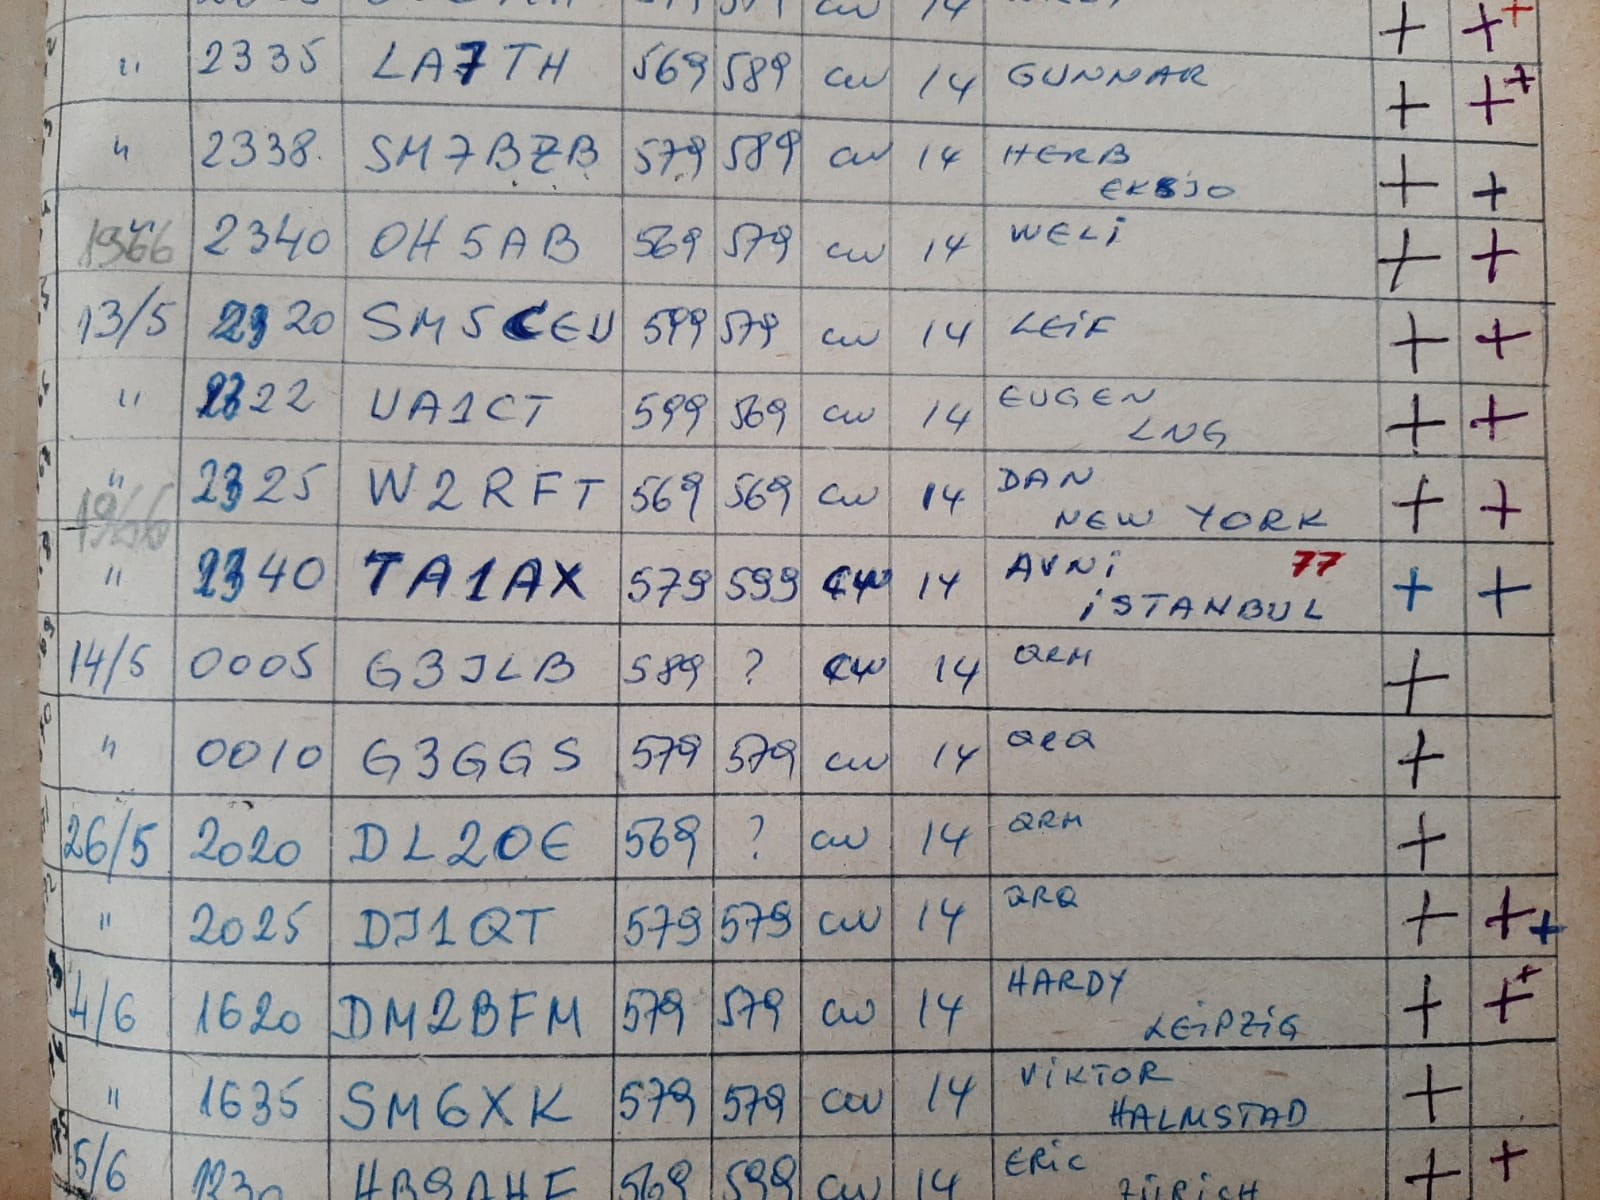 " 2335 LA7TH 569 589 cw 14 GUNNAR + + +
" 2338 SM7BZB 579 589 cw 14 HERB + +
EKSJO
1966 " 2340 OH5AB 569 579 cw 14 WELI + +
13/5 2320 SM5CEU 599 579 cw 14 LEIF + +
" 2322 UA1CT 599 569 cw 14 EUGEN + +
LNG
" 2325 W2RFT 569 569 cw 14 DAN + +
1966 NEW YORK
" 2340 TA1AX 579 599 cw 14 AVNi 77 + +
iSTANBUL
14/5 0005 G3JLB 589 ? cw 14 QRM +
" 0010 G3GGS 579 579 cw 14 QRQ +
26/5 2020 DL2OE 569 ? cw 14 QRM +
" 2025 DJ1QT 579 579 cw 14 QRQ + + +
4/6 1620 DM2BFM 579 579 cw 14 HARDY + + +
LEiPZiG
" 1635 SM6XK 579 579 cw 14 ViKTOR +
HALMSTAD
5/6 1230 HB9AHF 569 599 cw 14 ERiC + +
ZÜRiCH